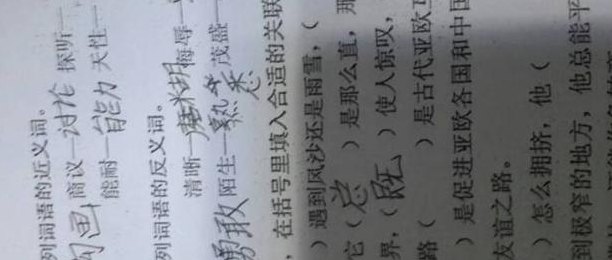 列词语的近义词。
勾画 商议—讨论 探听—
能耐—能力 天性—
列词语的反义词。
清晰—模糊 侮辱—
勇敢 陌生—熟悉 茂盛—
，在括号里填入合适的关联
）遇到风沙还是雨雪，（
它（总）是那么直，那
界，（既）使人惊叹，
路（ ）是古代亚欧互
）是促进亚欧各国和中国
友谊之路。
）怎么拥挤，他（
到极窄的地方，他总能平